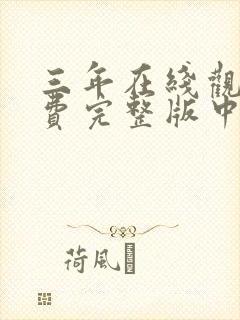 三年在綫觀
費完整版中
荷風